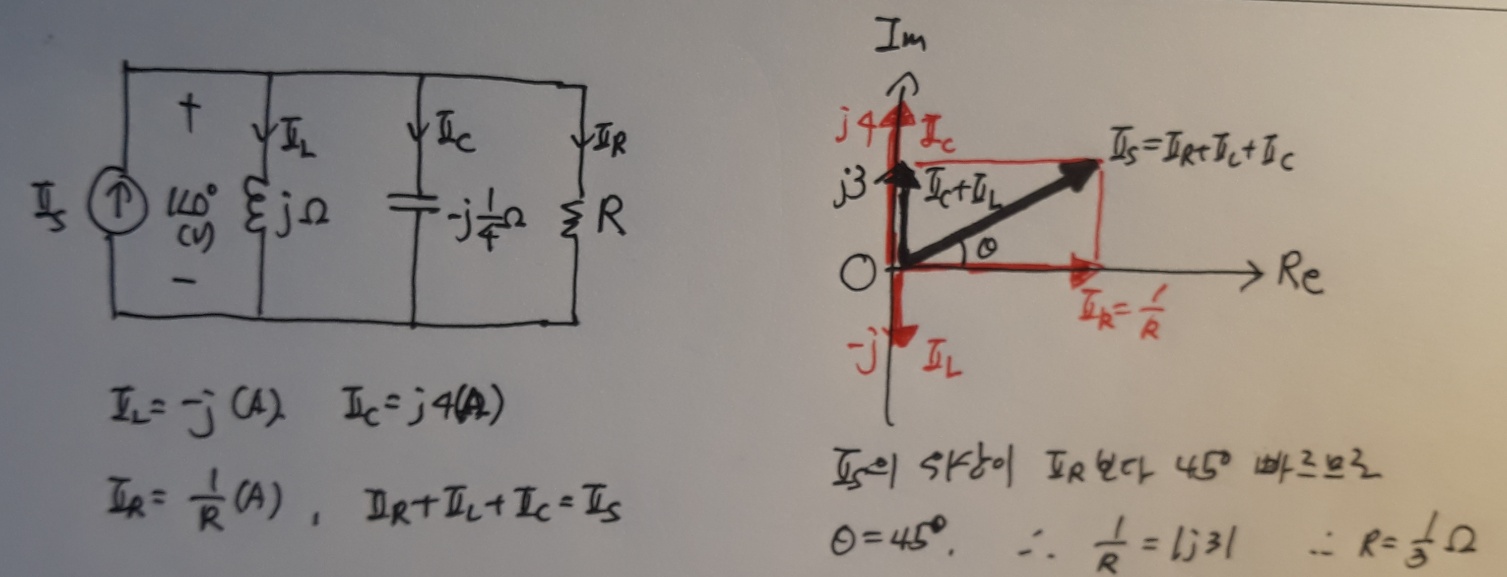 +
𝕀L
𝕀C
𝕀R
𝕀s
1∠0°
(V)
jΩ
-j1/4Ω
R
−
𝕀L = -j (A) 𝕀C = j4(A)
𝕀R = 1/R (A), 𝕀R+𝕀L+𝕀C = 𝕀s
Im
j4 𝕀C
𝕀s = 𝕀R+𝕀L+𝕀C
j3 𝕀C+𝕀L
θ
O Re
𝕀R = 1/R
-j 𝕀L
𝕀s의 위상이 𝕀R 보다 45° 빠르므로
θ = 45°. ∴ 1/R = |j3| ∴ R = 1/3 Ω